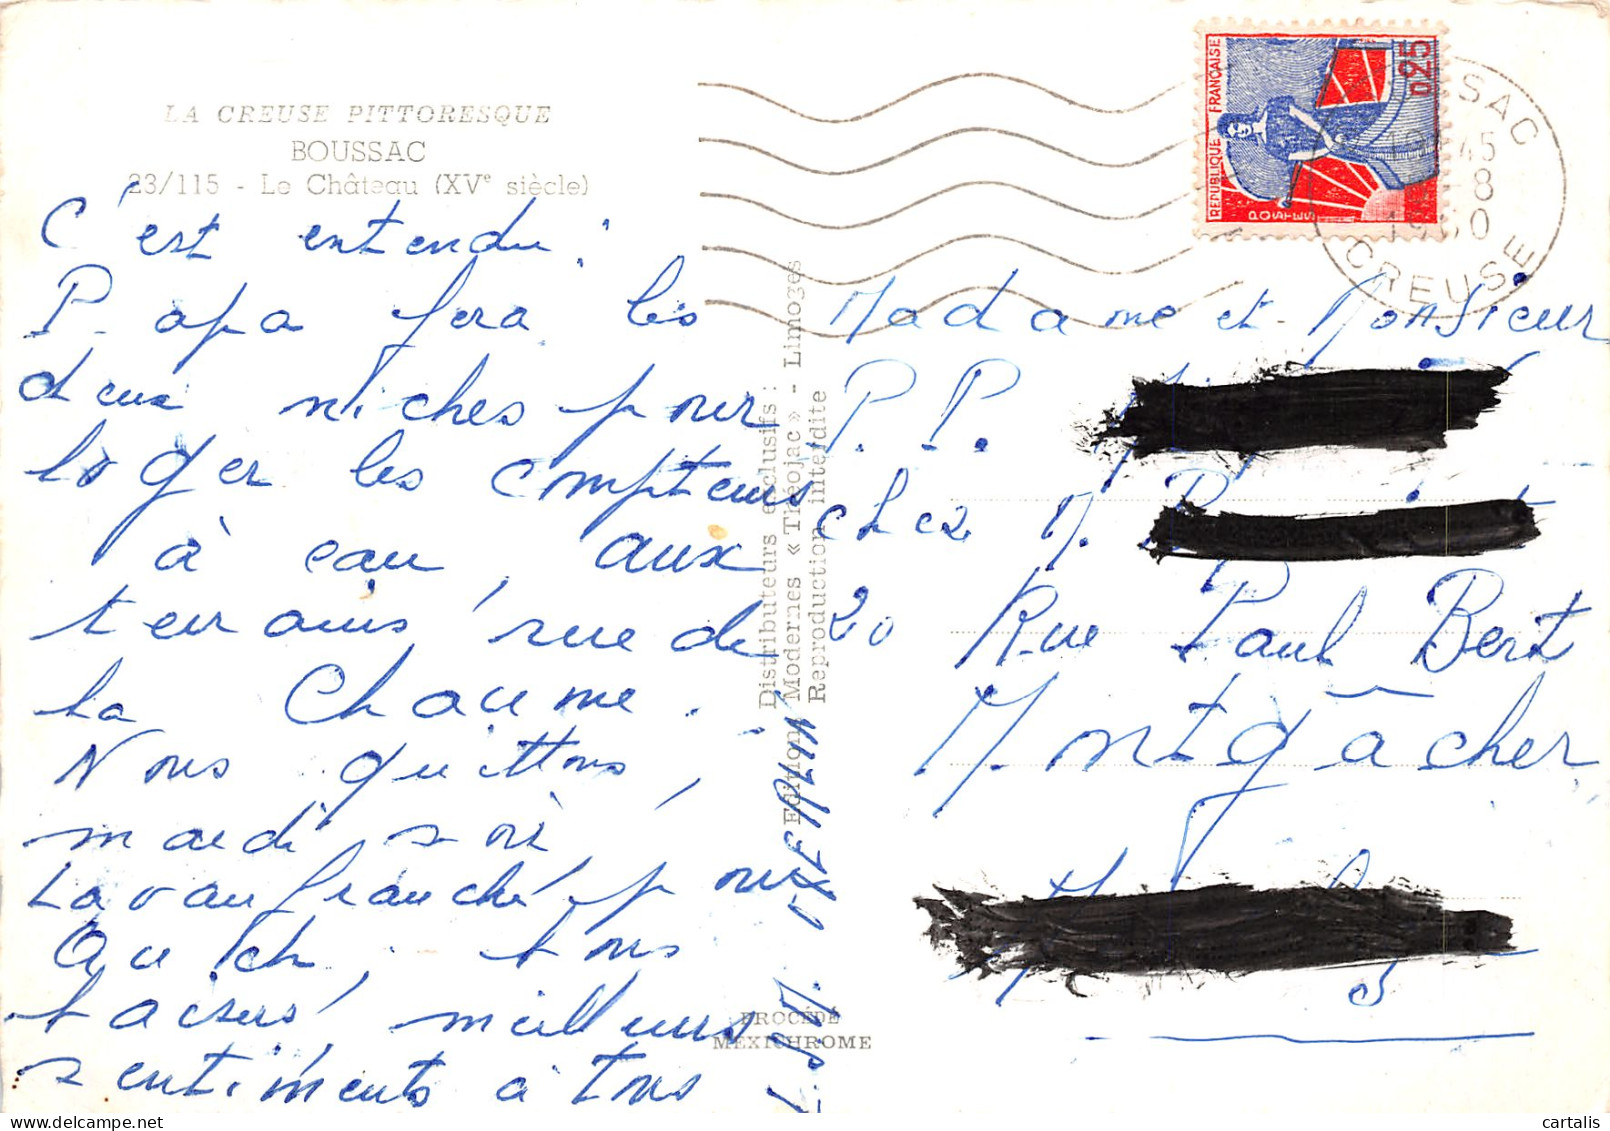 LA CREUSE PITTORESQUE
BOUSSAC
23/115 - Le Château (XVe siècle)
C'est entendu :
Papa fera les
deux niches pour
loger les compteurs
à eau, aux
terrains, rue de
la Chaume.
Nous quittons,
mardi soir
Lavaufranche pour
Auch, tous
baisers, meilleurs
sentiments à tous
Distributeurs exclusifs :
Editions Modernes « Théojac » - Limoges
Reproduction interdite
PROCÉDÉ
MEXICHROME
REPUBLIQUE FRANÇAISE
0,25
POSTES
SAC
45
-8
1960
CREUSE
Madame et Monsieur
P. P.
chez M.
20 Rue Paul Bert
Montgâcher
cartalis
delcampe.net